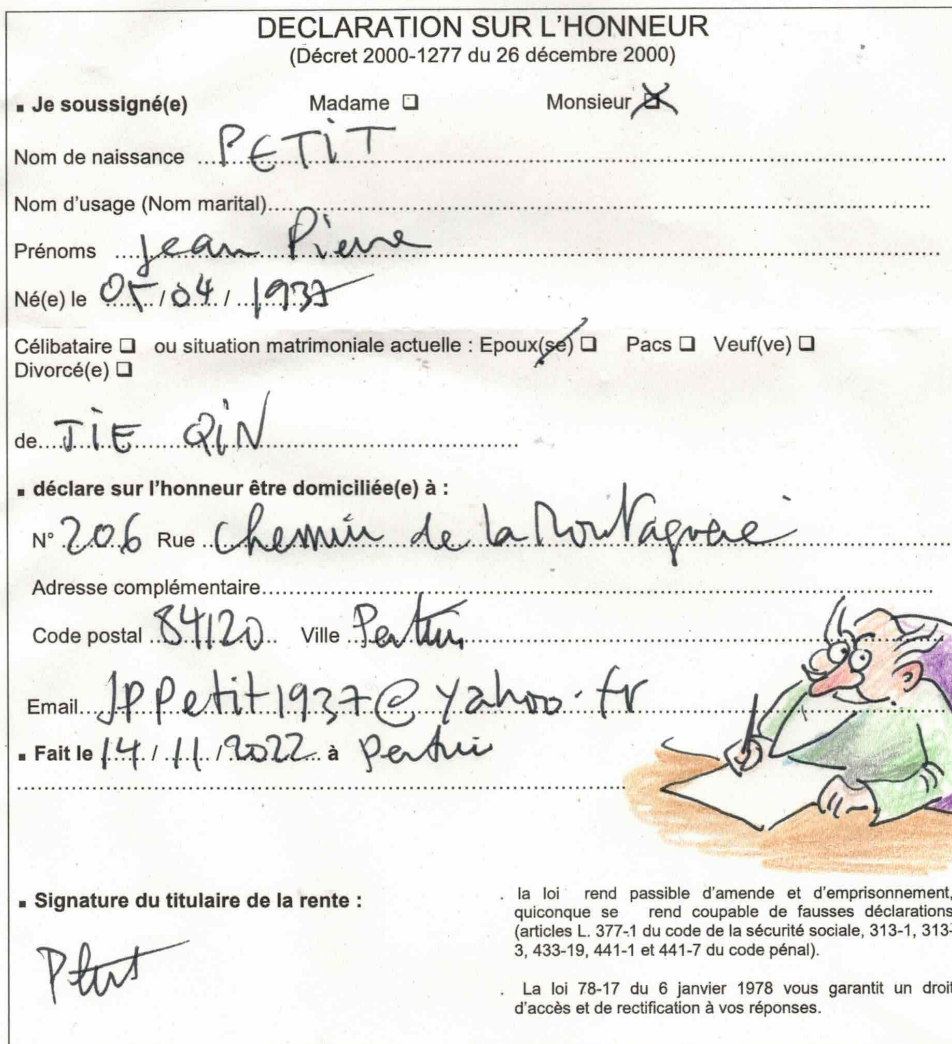 DECLARATION SUR L'HONNEUR
(Décret 2000-1277 du 26 décembre 2000)
▪ Je soussigné(e) Madame ❑ Monsieur ❑
Nom de naissance PETiT
Nom d'usage (Nom marital)
Prénoms Jean Pierre
Né(e) le 05/04/1937
Célibataire ❑ ou situation matrimoniale actuelle : Epoux(se) ❑ Pacs ❑ Veuf(ve) ❑
Divorcé(e) ❑
de JiE QiN
▪ déclare sur l'honneur être domiciliée(e) à :
N° 206 Rue Chemin de la Montagnère
Adresse complémentaire
Code postal 84120 Ville Pertuis
Email JPPetit1937@yahoo.fr
▪ Fait le 14/11/2022 à Pertuis
▪ Signature du titulaire de la rente :
. la loi rend passible d'amende et d'emprisonnement,
quiconque se rend coupable de fausses déclarations
(articles L. 377-1 du code de la sécurité sociale, 313-1, 313-
3, 433-19, 441-1 et 441-7 du code pénal).
. La loi 78-17 du 6 janvier 1978 vous garantit un droit
d'accès et de rectification à vos réponses.